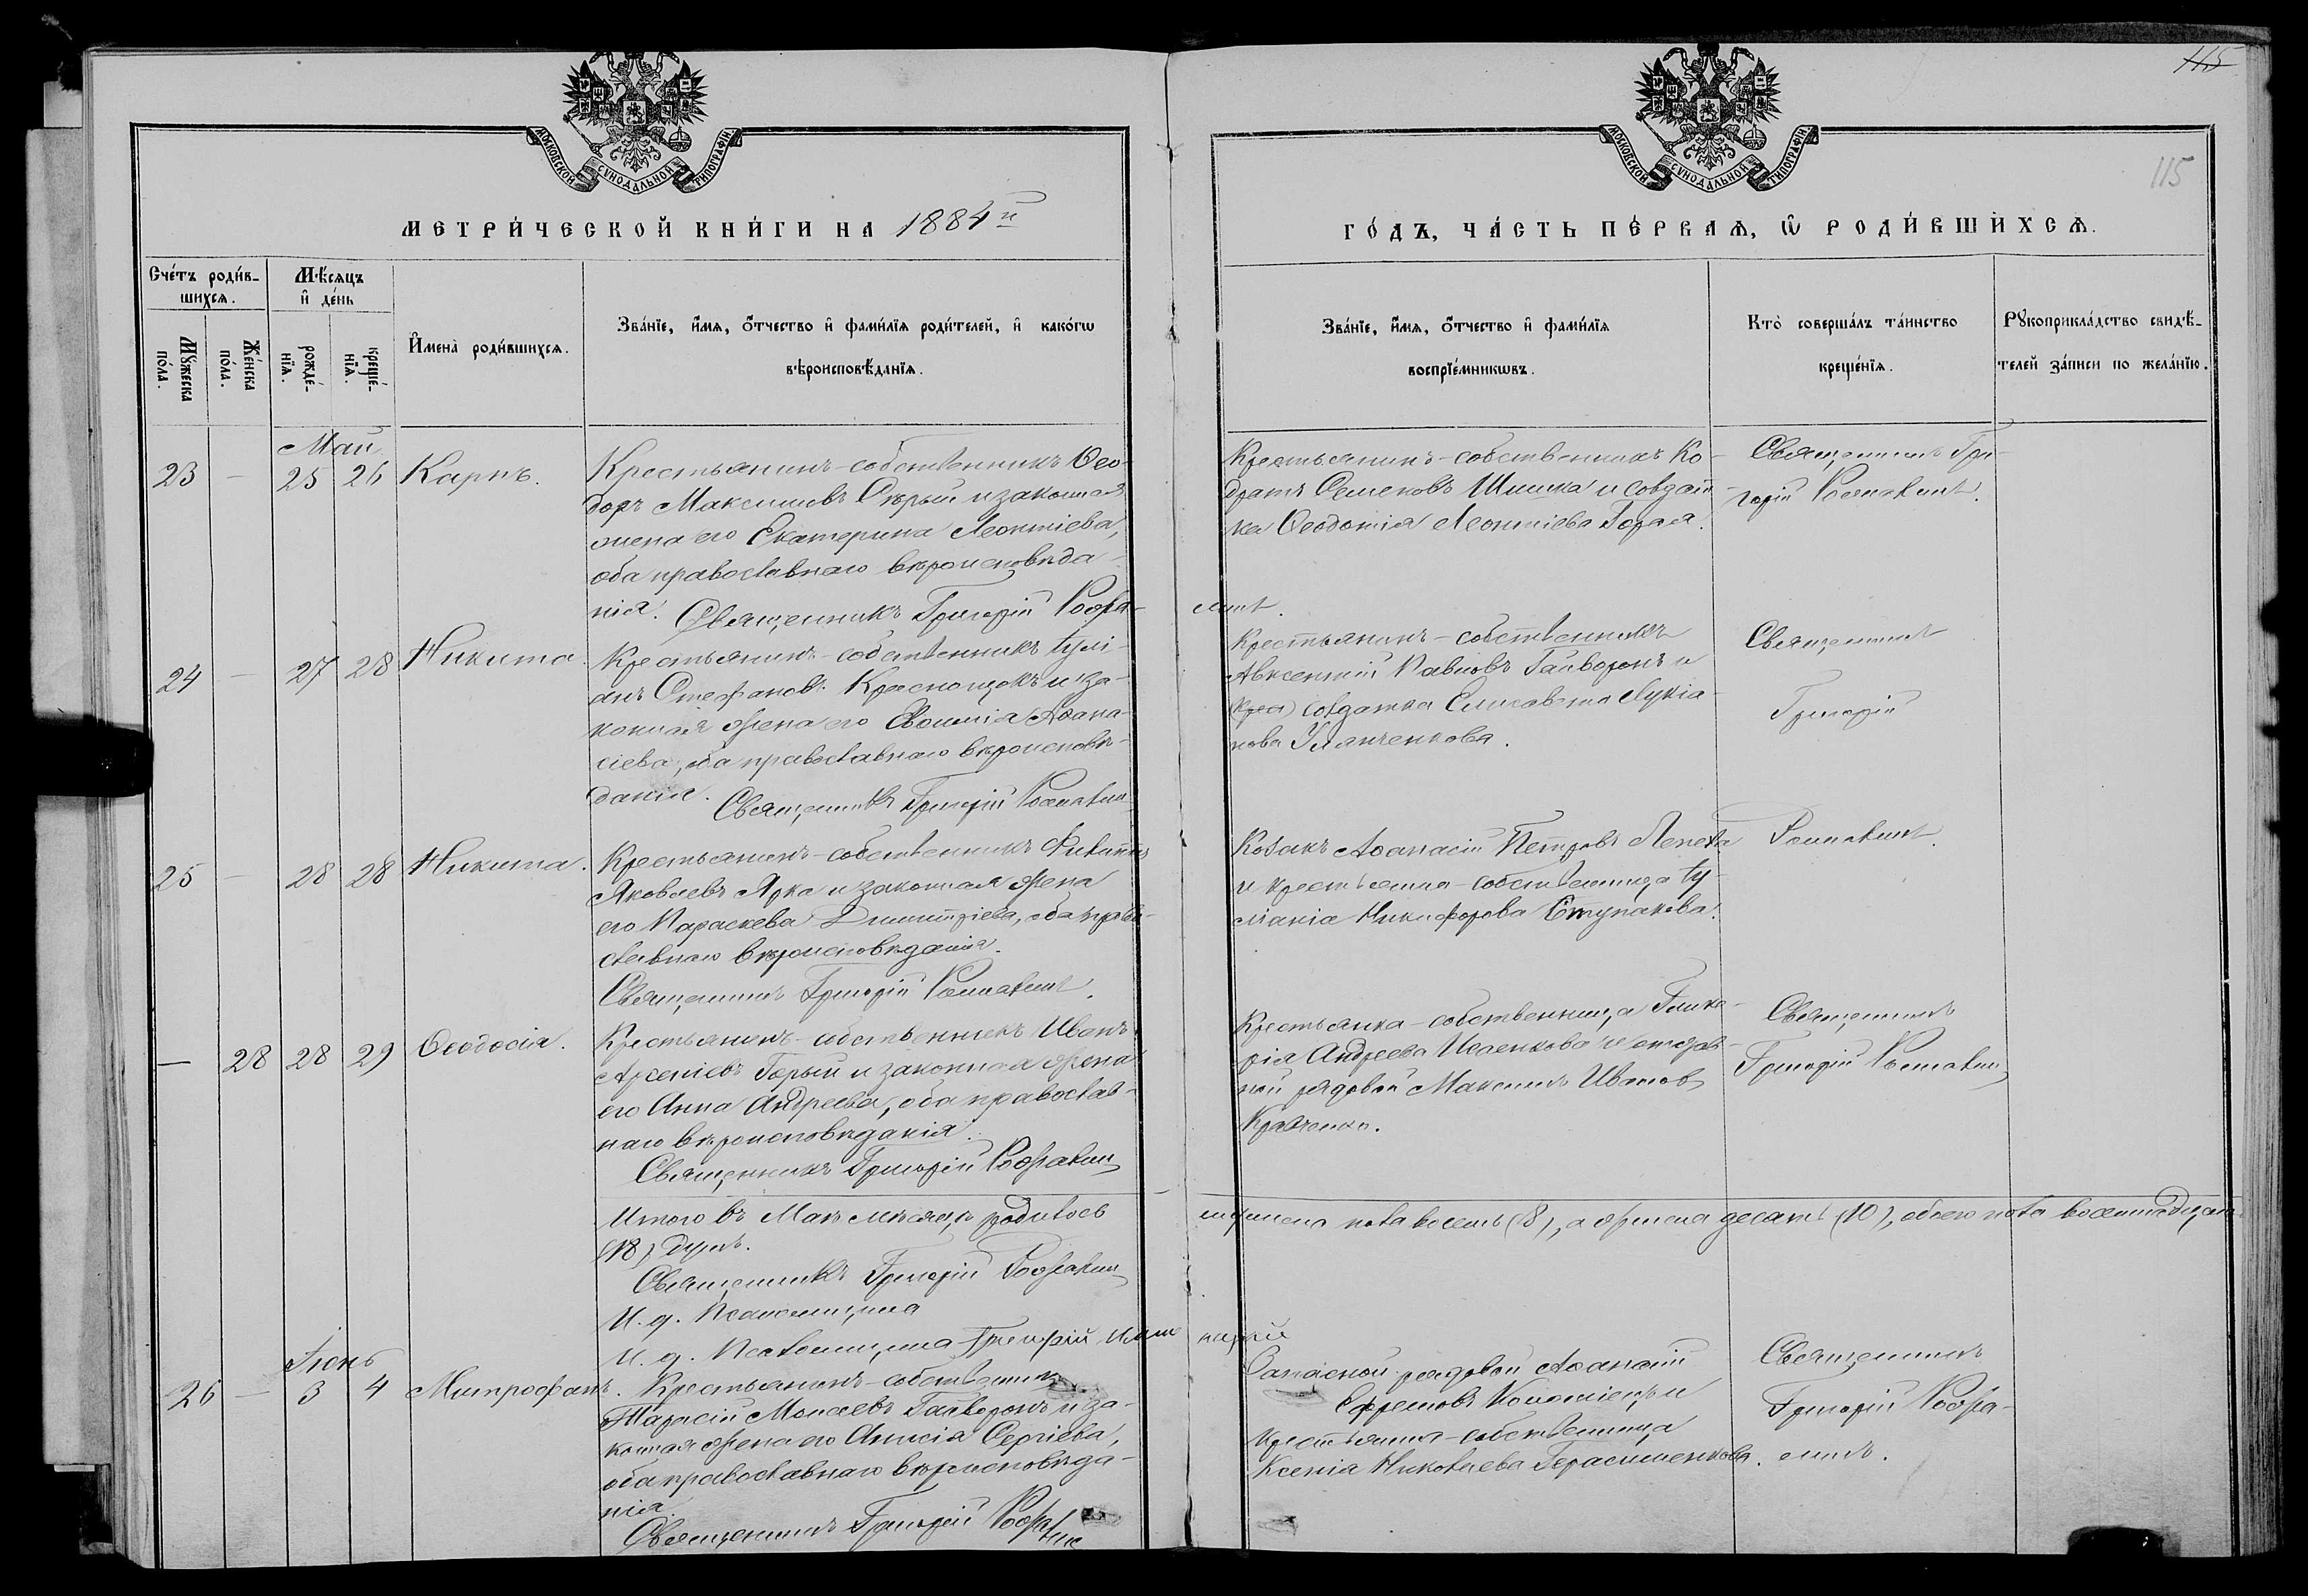 115
115
МОСКОВСКОЙ СУНОДАЛЬНОЙ ТИПОГРАФІИ
МОСКОВСКОЙ СУНОДАЛЬНОЙ ТИПОГРАФІИ
МЕТРИ́ЧЕСКОЙ КНИ́ГИ НА 1884й
ГО́ДЪ, ЧА́СТЬ ПЕ́РВАѦ, Ѡ РОДИ́ВШИХСѦ.
Сче́тъ роди́в-
шихсѧ.
Мꙋ́жеска
по́ла.
Же́нска
по́ла.
Мѣ́сѧцъ
и҆ де́нь
рожде́-
нїѧ.
креще́-
нїѧ.
И҆мена̀ роди́вшихсѧ.
Зва́нїе, и҆́мѧ, ѻ҆́тчество и҆ фами́лїѧ роди́телей, и҆ како́гѡ
вѣроисповѣ́данїѧ.
Зва́нїе, и҆́мѧ, ѻ҆́тчество и҆ фами́лїѧ
воспрїе́мникѡвъ.
Кто̀ соверша́лъ та́инство
креще́нїѧ.
Рꙋкоприкла́дство свидѣ́-
телей за́писи по жела́нїю.
Май
23 — 25 26 Карпъ.
Крестьянинъ-собственникъ Ѳео-
доръ Максимовъ Сѣрый и законная
жена его Екатерина Леонтіева,
оба православнаго вѣроисповѣда-
нія. Священникъ Григорій
Крестьянинъ-собственникъ Ко-
дратъ Семеновъ Шишка и солдат-
ка Ѳеодотія Леонтіева Горая.
Священникъ Гри-
горій
24 — 27 28 Никита.
Крестьянинъ-собственникъ Іулі-
анъ Стефановъ Краснощокъ и за-
конная жена его Евѳимія Аѳана-
сіева, оба православнаго вѣроисповѣ-
данія. Священникъ Григорій
Крестьянинъ-собственникъ
Авксентій Павловъ Гайворонъ и
(крес) солдатка Елисавета Лукіа-
нова Ульянченкова.
Священникъ
Григорій
25 — 28 28 Никита.
Крестьянинъ-собственникъ Филиппъ
Яковлевъ Ярка и законная жена
его Параскева Димитріева, оба право-
славнаго вѣроисповѣданія.
Священникъ Григорій
Козакъ Аѳанасій Петровъ Лепеха
и крестьянка-собственница Іу-
ліанія Никифорова Ступакова.
— 28 28 29 Ѳеодосія.
Крестьянинъ-собственникъ Иванъ
Арсеніевъ Горый и законная жена
его Анна Андреева, оба православ-
наго вѣроисповѣданія.
Священникъ Григорій
Крестьянка-собственница Глике-
рія Андреева Исаенкова и отстав-
ной рядовой Максимъ Ивановъ
Кравченко.
Священникъ
Григорій
Итого въ Маѣ мѣсяцѣ родилось мужеска пола восемь (8), а женска десять (10), обоего пола восемнадцать
(18) душъ.
Священникъ Григорій
И. д. Псаломщика
И. д. Псаломщика Григорій
Іюнь
26 — 3 4 Митрофанъ.
Крестьянинъ-собственникъ
Тарасій Моисеевъ Гайворонъ и за-
конная жена его Анисія Сергіева,
оба православнаго вѣроисповѣда-
нія.
Священникъ Григорій
Запасной рядовой Аѳанасій
Ефремовъ Коломіецъ и
крестьянка-собственница
Ксенія Николаева Герасименкова.
Священникъ
Григорій